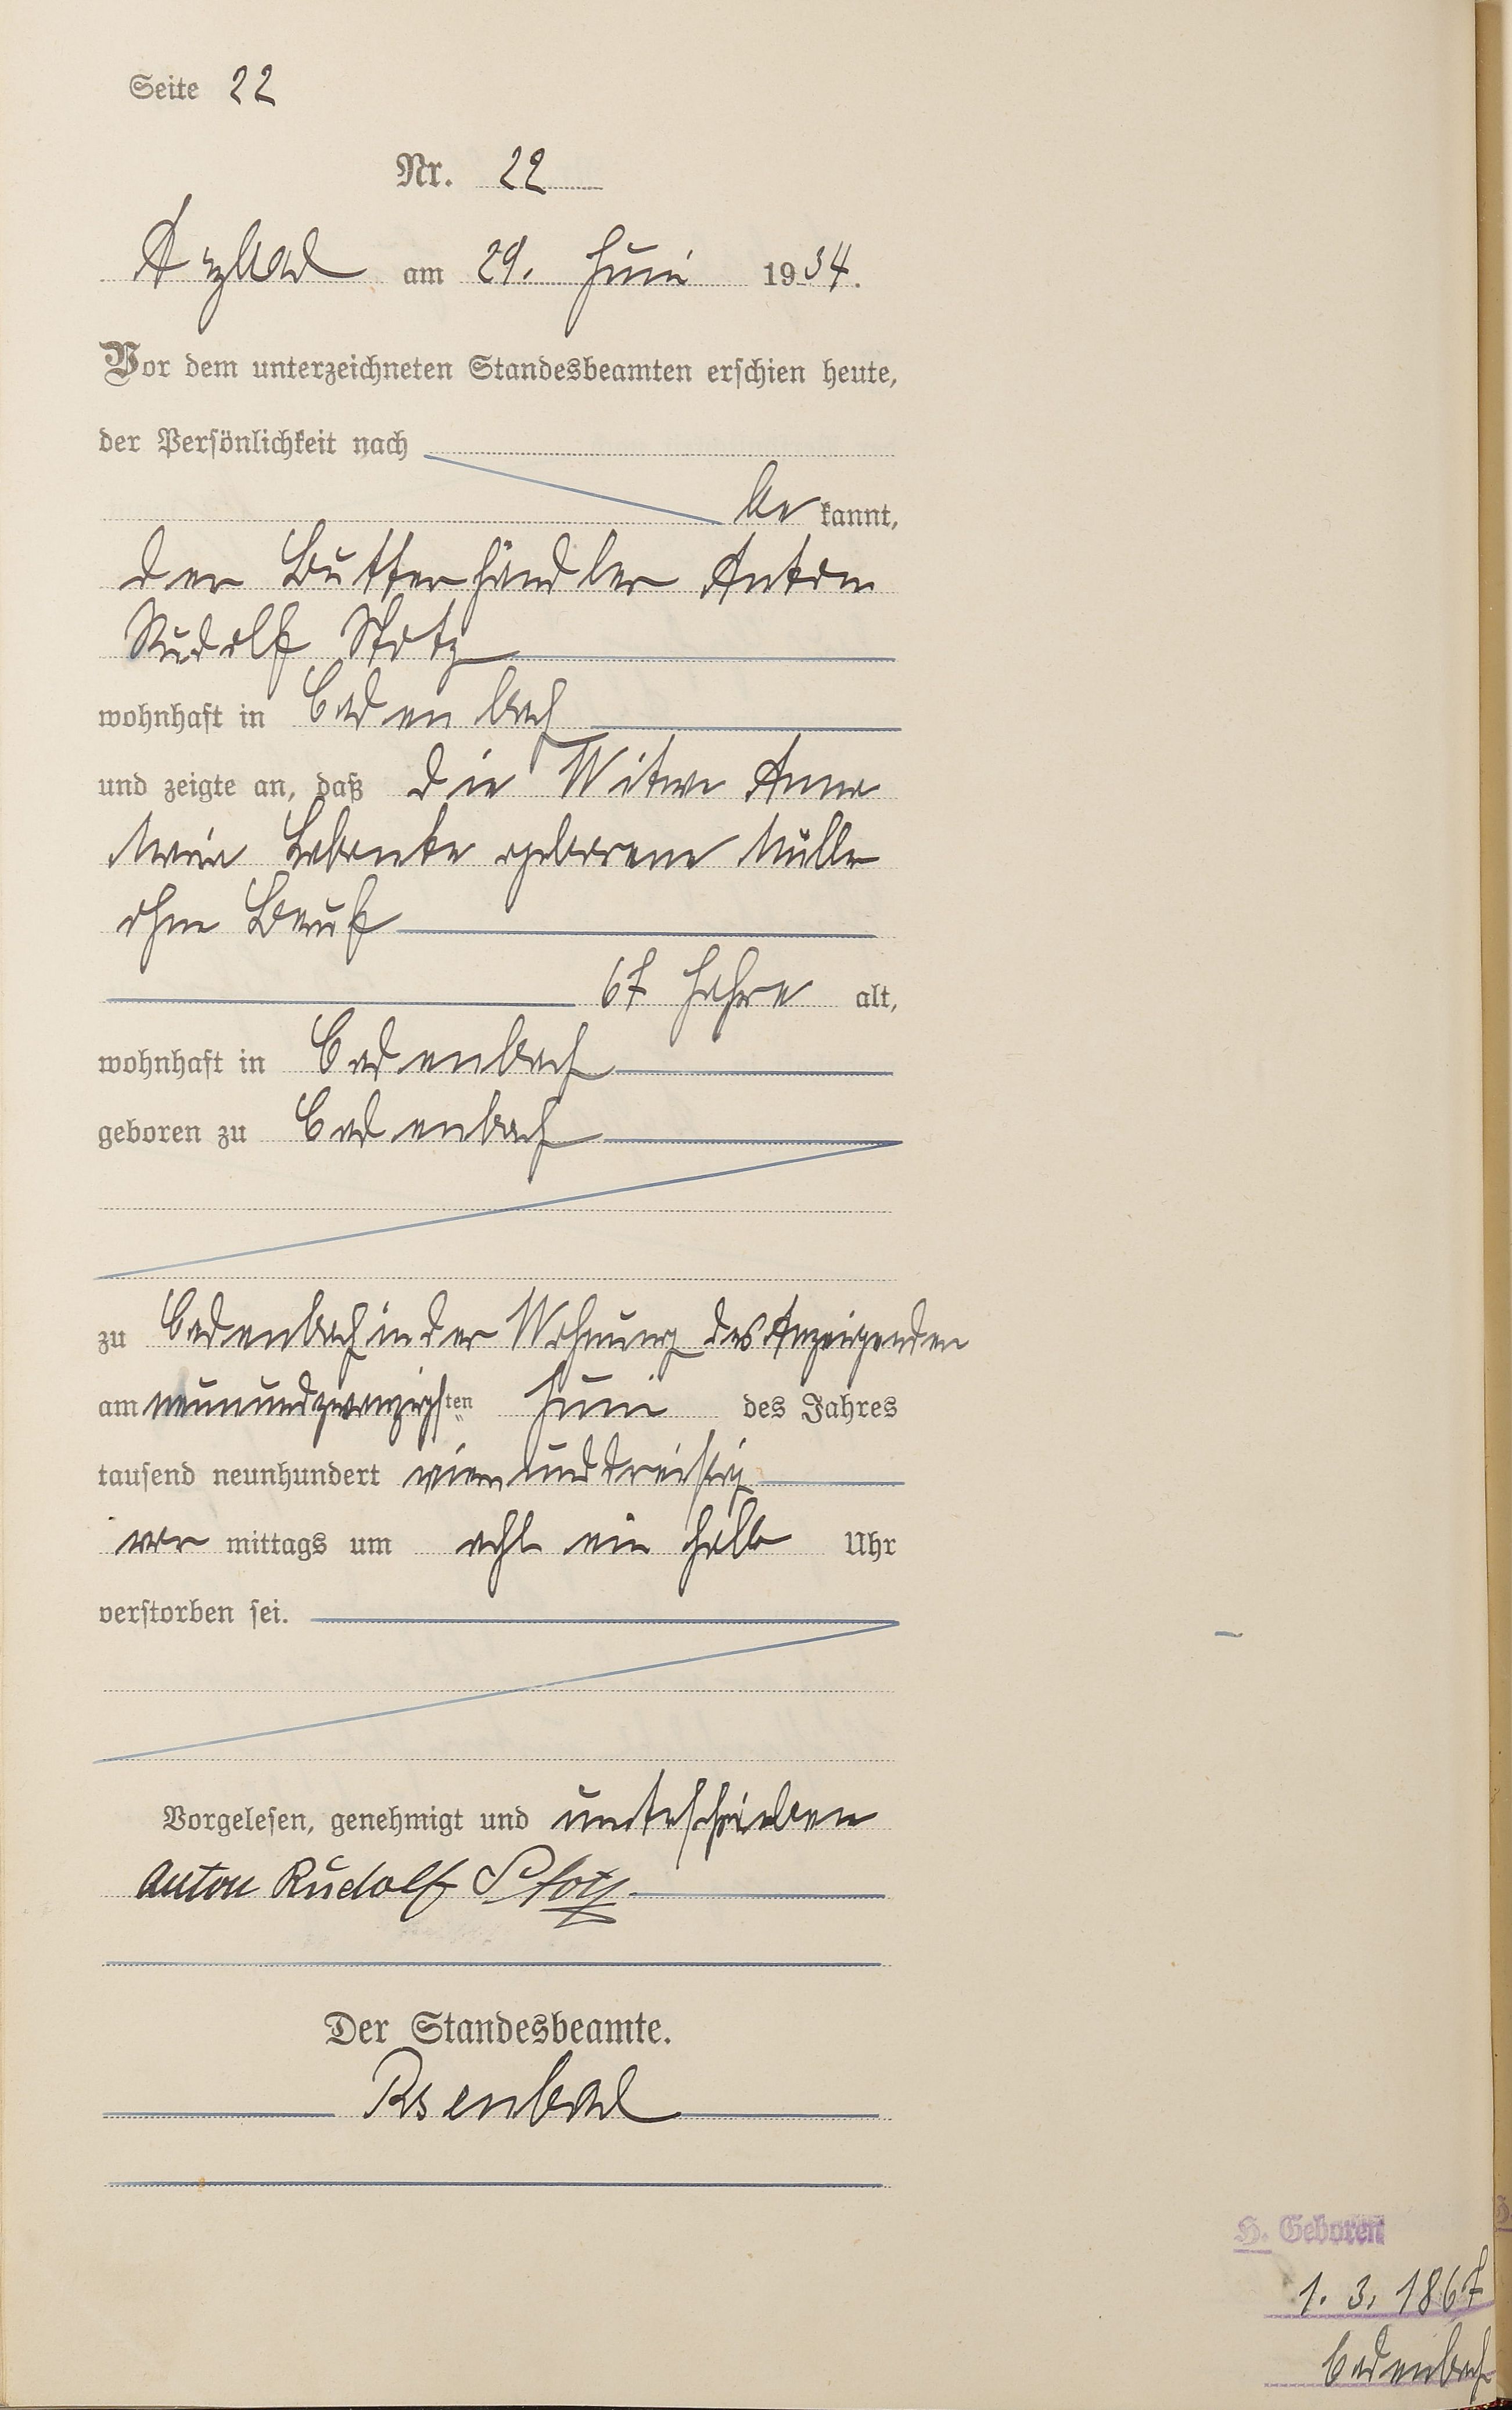 Seite 22
Nr. 22
Arzbach am 29. Juni 1934.
Vor dem unterzeichneten Standesbeamten erschien heute,
der Persönlichkeit nach
be kannt,
der Butterhändler Anton
Rudolf Stotz
wohnhaft in Cadenbach
und zeigte an, daß die Witwe Anna
Maria Labonte geborene Müller
ohne Beruf
67 Jahre alt,
wohnhaft in Cadenbach
geboren zu Cadenbach
zu Cadenbach in der Wohnung des Anzeigenden
am neunundzwanzigsten Juni des Jahres
tausend neunhundert vierunddreißig
vor mittags um acht ein halb Uhr
verstorben sei.
Vorgelesen, genehmigt und unterschrieben
Anton Rudolf Stotz
Der Standesbeamte.
H. Geboren
1. 3. 1867
Cadenbach